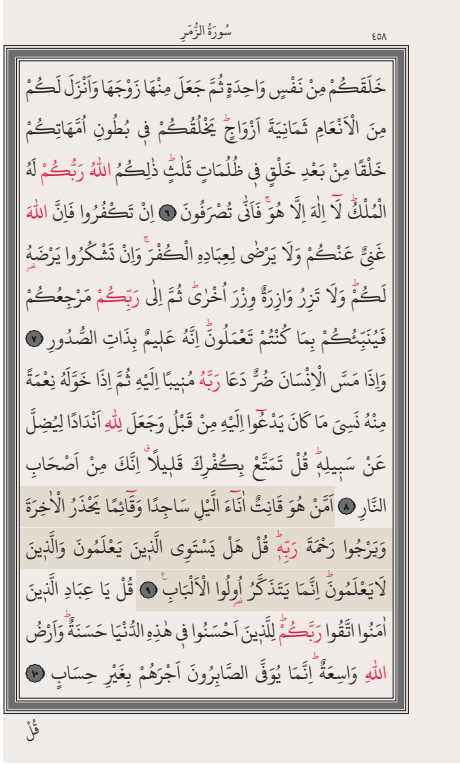 سُورَةُ الزُّمَرِ
٤٥٨
خَلَقَكُمْ مِنْ نَفْسٍ وَاحِدَةٍ ثُمَّ جَعَلَ مِنْهَا زَوْجَهَا وَاَنْزَلَ لَكُمْ
مِنَ الْاَنْعَامِ ثَمَانِيَةَ اَزْوَاجٍۜ يَخْلُقُكُمْ فٖي بُطُونِ اُمَّهَاتِكُمْ
خَلْقًا مِنْ بَعْدِ خَلْقٍ فٖي ظُلُمَاتٍ ثَلٰثٍۜ ذٰلِكُمُ اللّٰهُ رَبُّكُمْ لَهُ
الْمُلْكُۜ لَٓا اِلٰهَ اِلَّا هُوَۚ فَاَنّٰى تُصْرَفُونَ ٦ اِنْ تَكْفُرُوا فَاِنَّ اللّٰهَ
غَنِيٌّ عَنْكُمْ وَلَا يَرْضٰى لِعِبَادِهِ الْكُفْرَۚ وَاِنْ تَشْكُرُوا يَرْضَهُ
لَكُمْۜ وَلَا تَزِرُ وَازِرَةٌ وِزْرَ اُخْرٰىۜ ثُمَّ اِلٰى رَبِّكُمْ مَرْجِعُكُمْ
فَيُنَبِّئُكُمْ بِمَا كُنْتُمْ تَعْمَلُونَۜ اِنَّهُ عَلٖيمٌ بِذَاتِ الصُّدُورِ ٧
وَاِذَا مَسَّ الْاِنْسَانَ ضُرٌّ دَعَا رَبَّهُ مُنٖيبًا اِلَيْهِ ثُمَّ اِذَا خَوَّلَهُ نِعْمَةً
مِنْهُ نَسِيَ مَا كَانَ يَدْعُٓوا اِلَيْهِ مِنْ قَبْلُ وَجَعَلَ لِلّٰهِ اَنْدَادًا لِيُضِلَّ
عَنْ سَبٖيلِهٖۜ قُلْ تَمَتَّعْ بِكُفْرِكَ قَلٖيلًاۗ اِنَّكَ مِنْ اَصْحَابِ
النَّارِ ٨ اَمَّنْ هُوَ قَانِتٌ اٰنَٓاءَ الَّيْلِ سَاجِدًا وَقَٓائِمًا يَحْذَرُ الْاٰخِرَةَ
وَيَرْجُوا رَحْمَةَ رَبِّهٖۜ قُلْ هَلْ يَسْتَوِي الَّذٖينَ يَعْلَمُونَ وَالَّذٖينَ
لَايَعْلَمُونَۜ اِنَّمَا يَتَذَكَّرُ اُو۬لُوا الْاَلْبَابِۚ ٩ قُلْ يَا عِبَادِ الَّذٖينَ
اٰمَنُوا اتَّقُوا رَبَّكُمْۜ لِلَّذٖينَ اَحْسَنُوا فٖي هٰذِهِ الدُّنْيَا حَسَنَةٌۜ وَاَرْضُ
اللّٰهِ وَاسِعَةٌۜ اِنَّمَا يُوَفَّى الصَّابِرُونَ اَجْرَهُمْ بِغَيْرِ حِسَابٍ ١٠
قُلْ